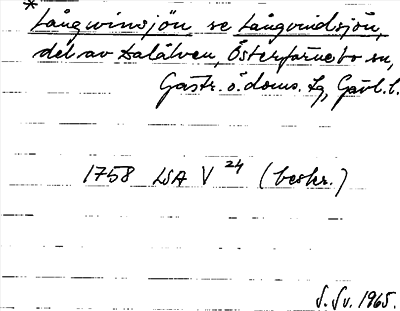 * Långwinsjön, se Långvindsjön,
del av Dalälven, Österfärnebo sn,
Gästr. ö. doms. tg, Gävl. l.
1758 LSA V 24 (beskr.)
S. Sv. 1965.